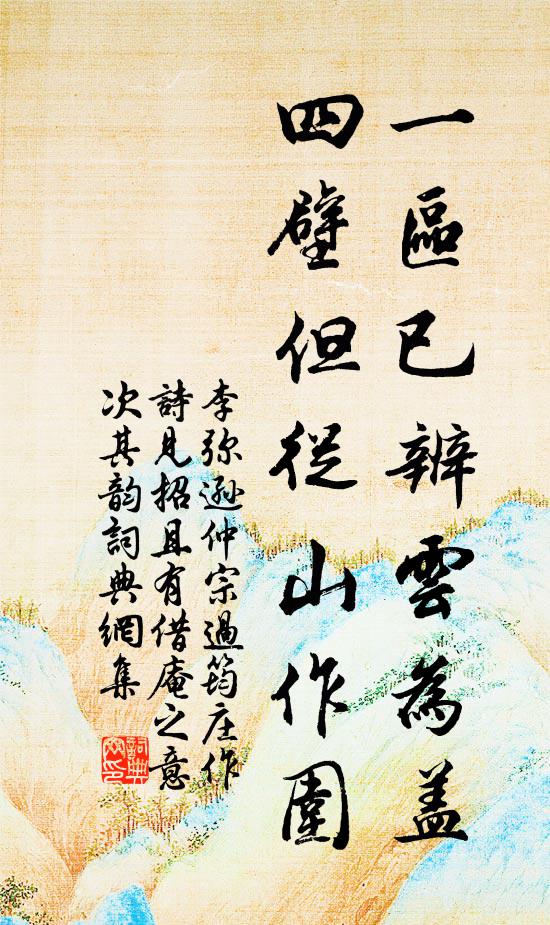 一區已辨雲為蓋
四壁但從山作圍
李弥遜仲宗過筠庄作
詩見招且有借庵之意
次其韵詞典網集
詞典
网印